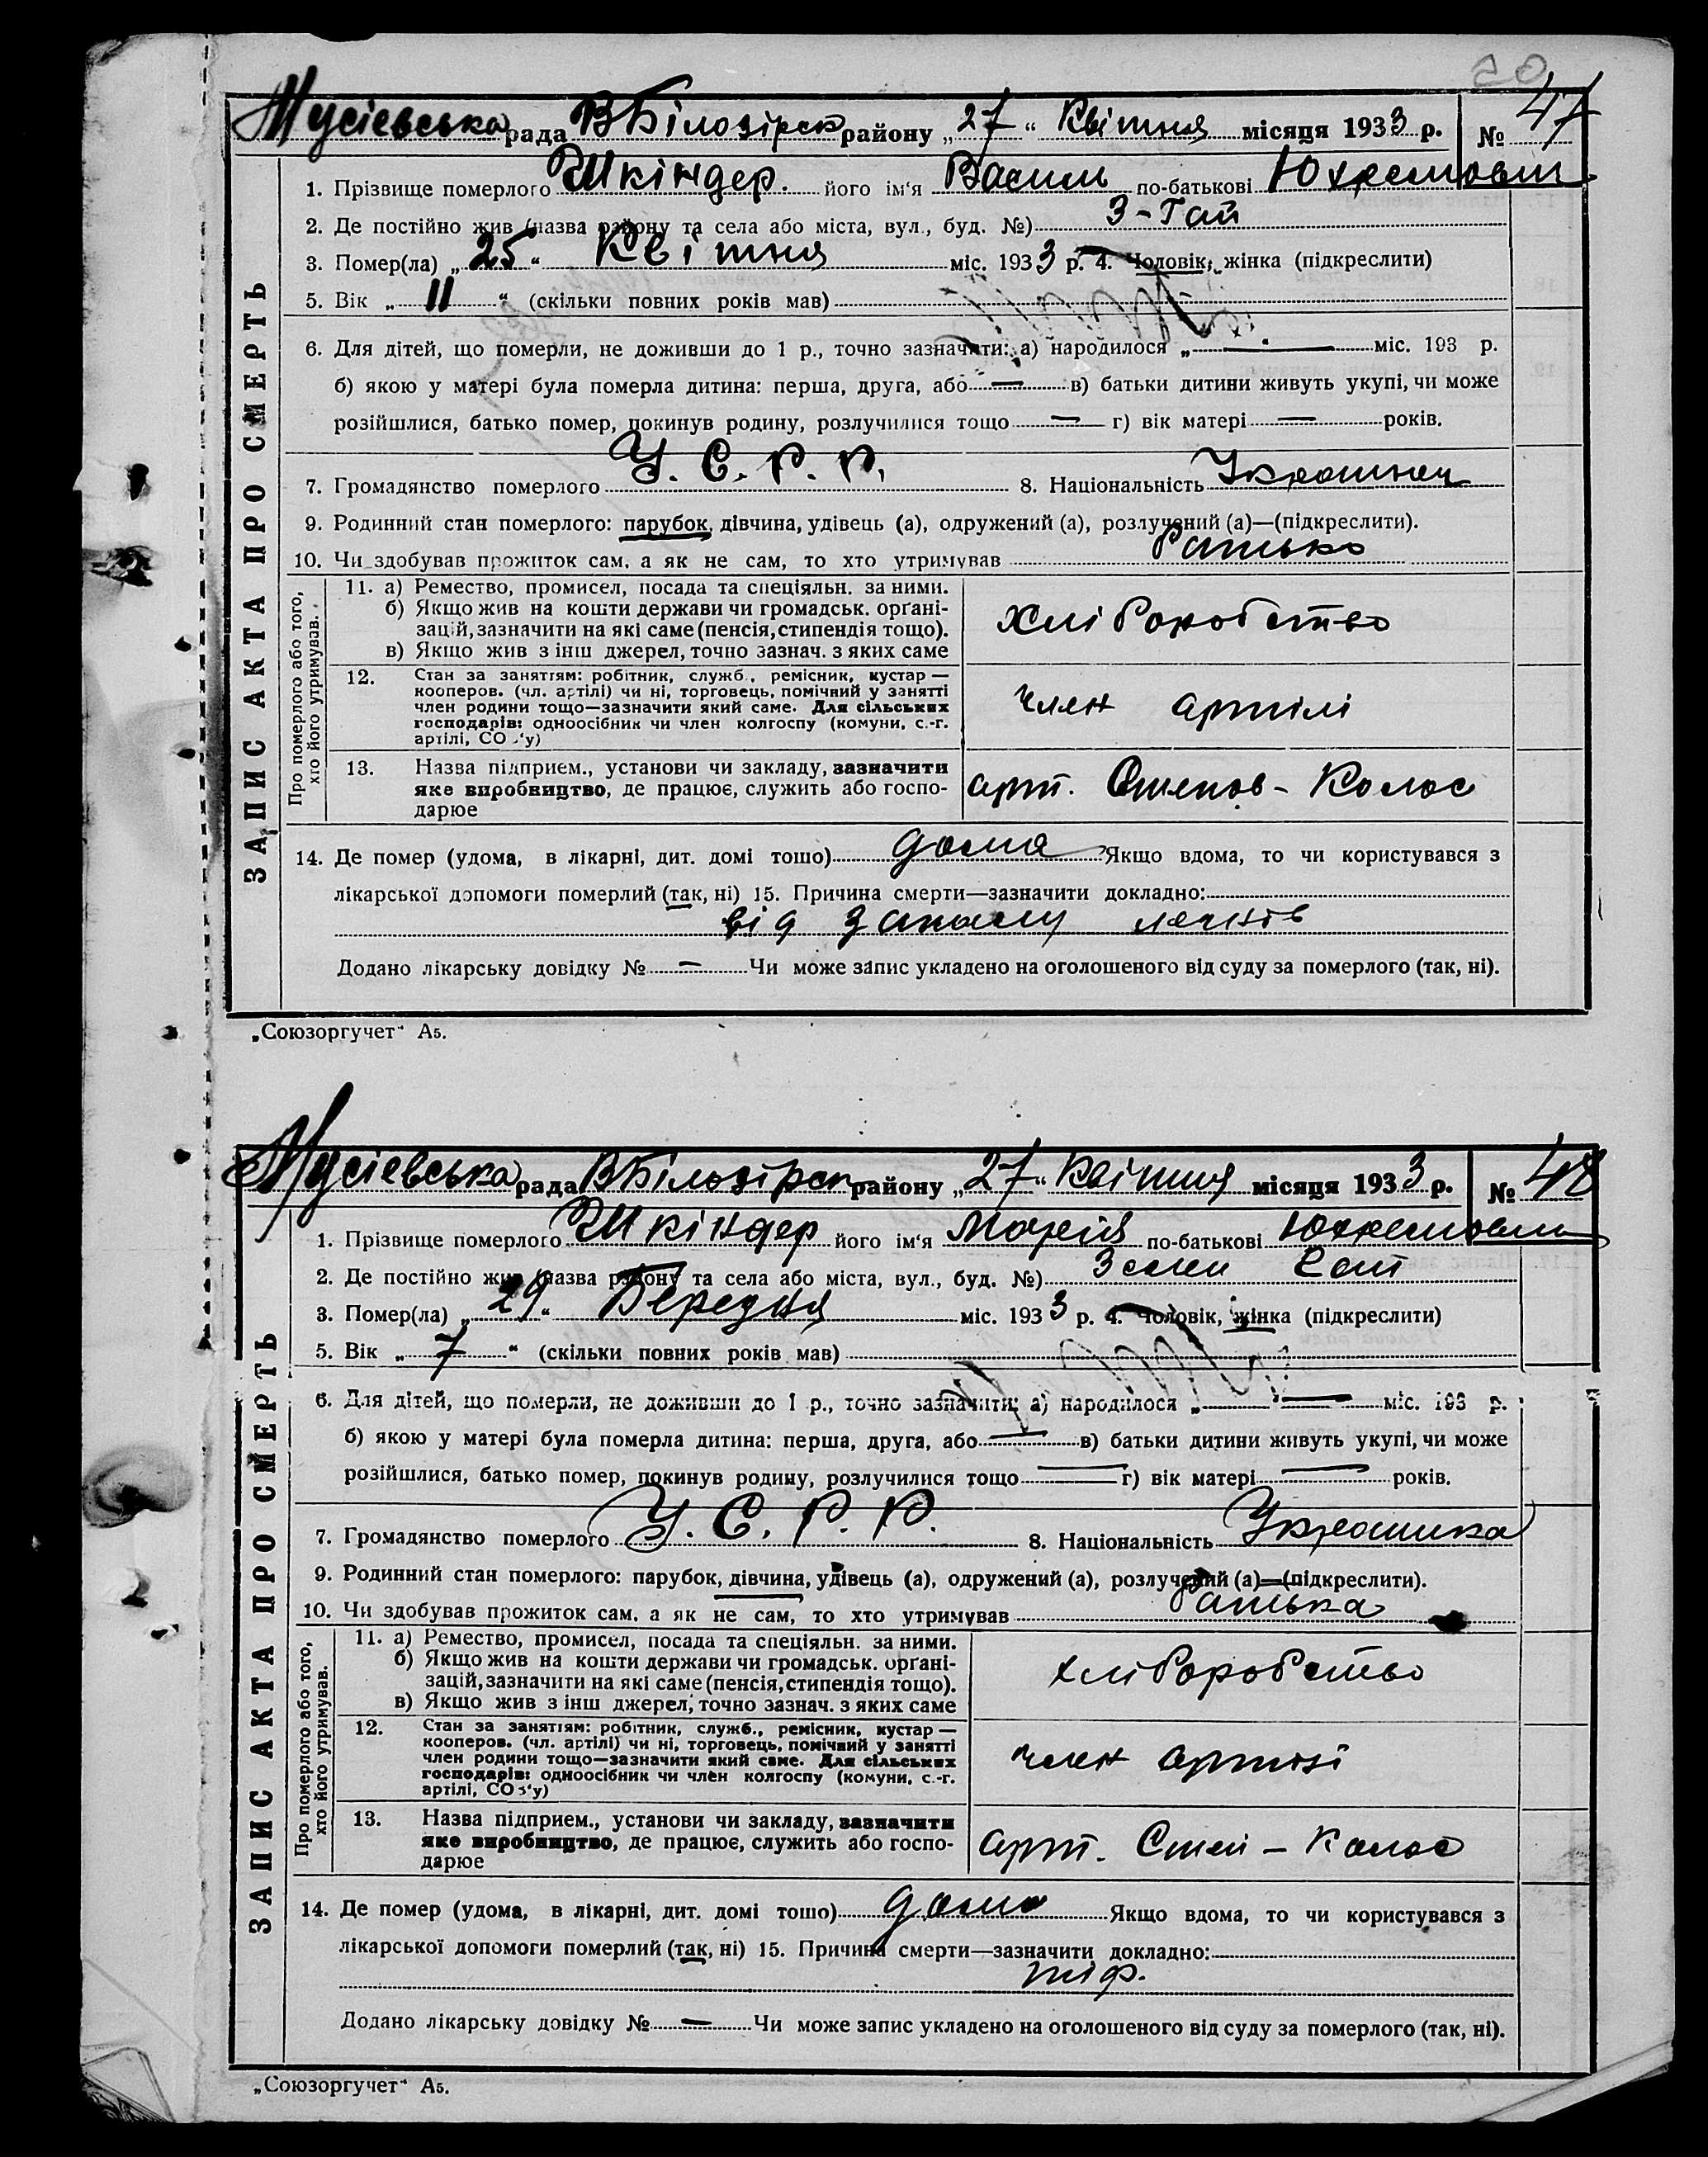 20
Мусієвська рада В Білозірск району „27“ Квітня місяця 1933 р. № 47
ЗАПИС АКТА ПРО СМЕРТЬ
1. Прізвище померлого Шкіндер. його ім‘я Василь по-батькові
2. Де постійно жив (назва району та села або міста, вул., буд. №) З-Гай
3. Помер(ла) „25“ Квітня міс. 1933 р. 4. Чоловік, жінка (підкреслити)
5. Вік „11“ (скільки повних років мав)
6. Для дітей, що померли, не доживши до 1 р., точно зазначити: а) народилося „—“ міс. 193 р.
б) якою у матері була померла дитина: перша, друга, або — в) батьки дитини живуть укупі, чи може
розійшлися, батько помер, покинув родину, розлучилися тощо — г) вік матері — років.
7. Громадянство померлого У. С. Р. Р. 8. Національність Українец
9. Родинний стан померлого: парубок, дівчина, удівець (а), одружений (а), розлучений (а)—(підкреслити).
10. Чи здобував прожиток сам, а як не сам, то хто утримував Батько
Про померлого або того, хто його утримував.
11. а) Ремество, промисел, посада та спеціяльн. за ними.
б) Якщо жив на кошти держави чи громадськ. орґані-
зацій, зазначити на які саме (пенсія, стипендія тощо).
в) Якщо жив з інш джерел, точно зазнач. з яких саме
хліборобство
12. Стан за заняттям: робітник, служб., ремісник, кустар —
кооперов. (чл. артілі) чи ні, торговець, помічний у занятті
член родини тощо—зазначити який саме. Для сільських
господарів: одноосібник чи член колгоспу (комуни, с.-г.
артілі, СОЗ‘у)
член артілі
13. Назва підприєм., установи чи закладу, зазначити
яке виробництво, де працює, служить або госпо-
дарює
арт. Степов - Колос
14. Де помер (удома, в лікарні, дит. домі тощо) дома Якщо вдома, то чи користувався з
лікарської допомоги померлий (так, ні) 15. Причина смерти—зазначити докладно:
від запалу легнів
Додано лікарську довідку № — Чи може запис укладено на оголошеного від суду за померлого (так, ні).
„Союзоргучет“ А5.
Мусієвська рада В Білозірск району „27“ Квітня місяця 1933 р. № 48
ЗАПИС АКТА ПРО СМЕРТЬ
1. Прізвище померлого Шкіндер його ім‘я Марія по-батькові
2. Де постійно жив (назва району та села або міста, вул., буд. №)
3. Помер(ла) „29“ Березня міс. 1933 р. 4. Чоловік, жінка (підкреслити)
5. Вік „7“ (скільки повних років мав)
6. Для дітей, що померли, не доживши до 1 р., точно зазначити: а) народилося „—“ міс. 193 р.
б) якою у матері була померла дитина: перша, друга, або — в) батьки дитини живуть укупі, чи може
розійшлися, батько помер, покинув родину, розлучилися тощо — г) вік матері — років.
7. Громадянство померлого У. С. Р. Р. 8. Національність Українка
9. Родинний стан померлого: парубок, дівчина, удівець (а), одружений (а), розлучений (а)—(підкреслити).
10. Чи здобував прожиток сам, а як не сам, то хто утримував Батька
Про померлого або того, хто його утримував.
11. а) Ремество, промисел, посада та спеціяльн. за ними.
б) Якщо жив на кошти держави чи громадськ. орґані-
зацій, зазначити на які саме (пенсія, стипендія тощо).
в) Якщо жив з інш джерел, точно зазнач. з яких саме
хліборобство
12. Стан за заняттям: робітник, служб., ремісник, кустар —
кооперов. (чл. артілі) чи ні, торговець, помічний у занятті
член родини тощо—зазначити який саме. Для сільських
господарів: одноосібник чи член колгоспу (комуни, с.-г.
артілі, СОЗ‘у)
член артілі
13. Назва підприєм., установи чи закладу, зазначити
яке виробництво, де працює, служить або госпо-
дарює
арт. Степ - Колос
14. Де помер (удома, в лікарні, дит. домі тощо) дома Якщо вдома, то чи користувався з
лікарської допомоги померлий (так, ні) 15. Причина смерти—зазначити докладно:
тіф.
Додано лікарську довідку № — Чи може запис укладено на оголошеного від суду за померлого (так, ні).
„Союзоргучет“ А5.